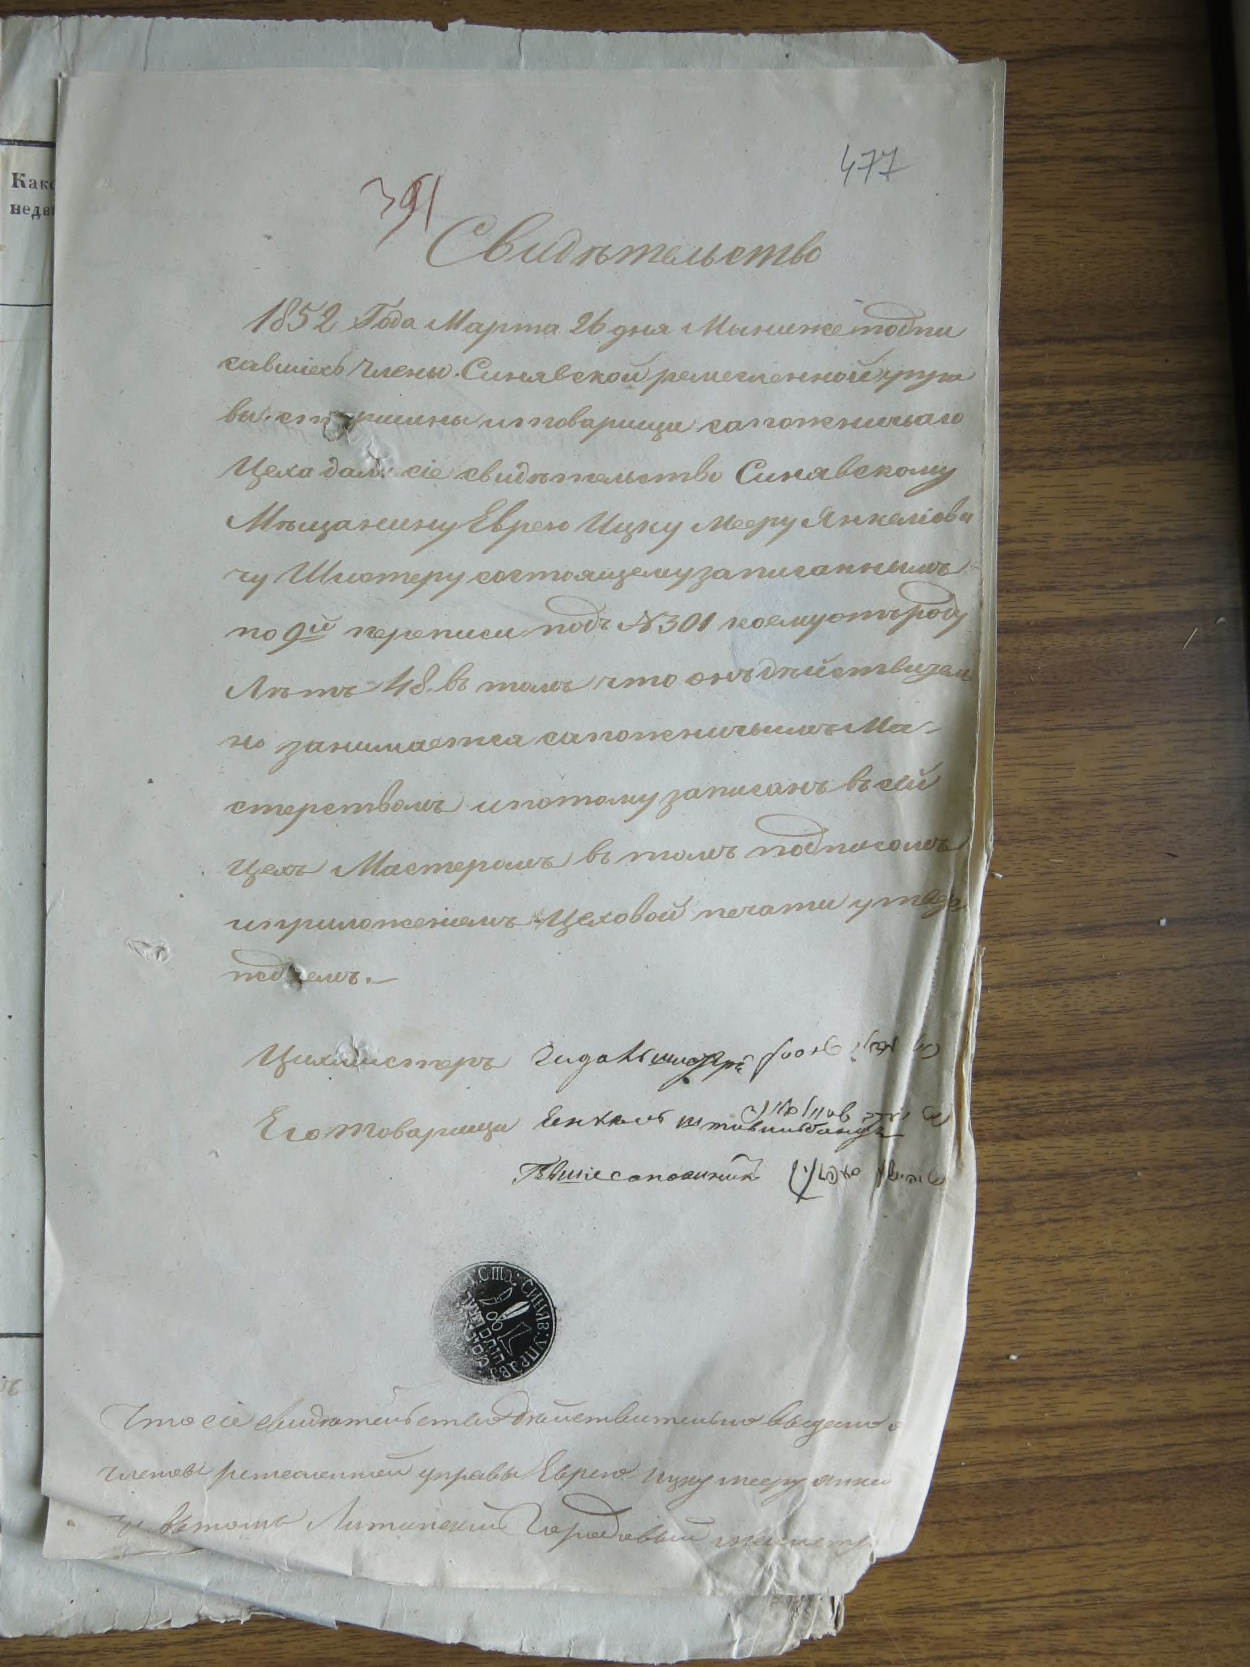 Како
недви
477
391
Свидѣтельство
1852 Года Марта 26 дня Мыниже подпи
савшіесь Члены Синявской ремесленной упра
вы старшины и товарищи сапожничьаго
Цеха дали сіе свидѣтельство Синявскому
Мѣщанину Еврею Ицку Мееру Янкеліови
чу Шистеру состоящему записаннымъ
по 9й переписи подъ №301 коему отъ роду
Лѣтъ 48. въ томъ что онъ дѣйствител
но занимается сапожничьимъ Ма-
стерствомъ и потому записанъ въ сей
Цехъ Мастеромъ въ томъ подписомъ
и приложеніемъ Цеховой печати утвер
ждаемъ.
Цихмистеръ
Его товарищи
сапожникъ
СИНЯВ: УПРАВ
Что сіе свидѣтельство дѣйствительно выдано
членами ременной управы Еврею Ицку Мееру Янке
въ томъ Литинскій Городовый